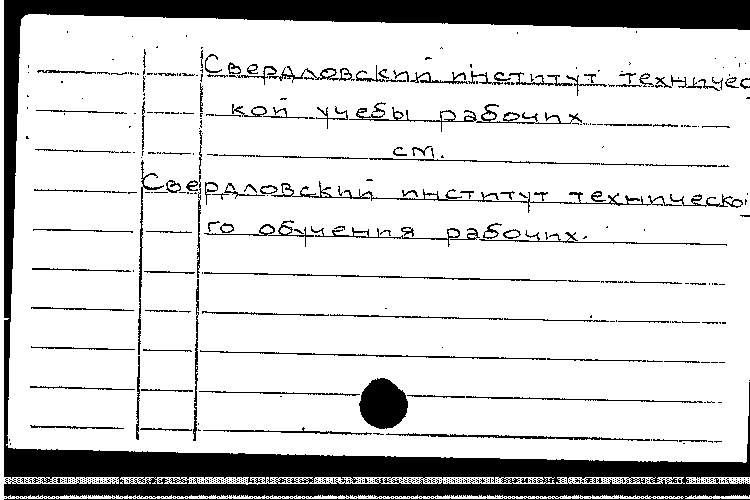 Свердловский институт техничес
кой учебы рабочих
см.
Свердловский институт техническо
го обучения рабочих.